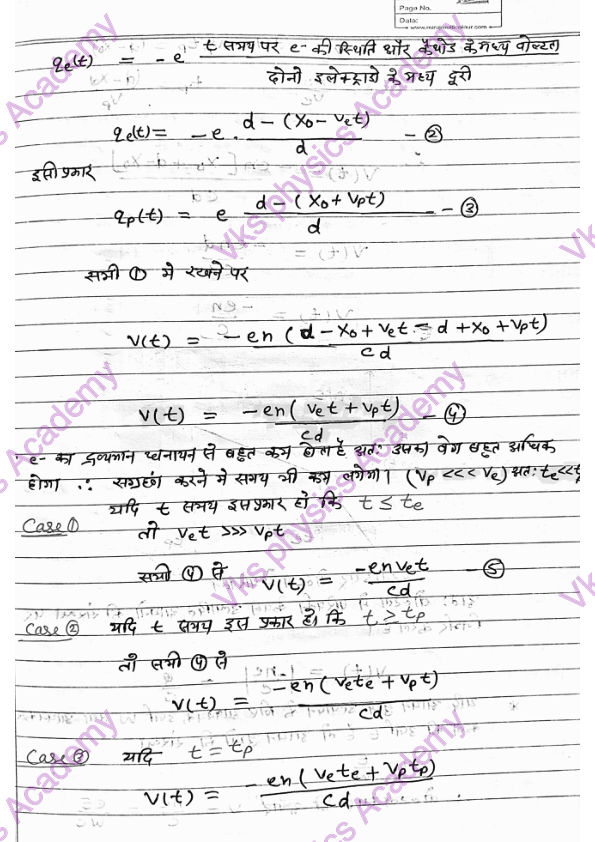 Page No.
Date:
t समय पर e- की स्थिति और कैथोड के मध्य वोल्टता
qe(t) = - e
दोनो इलेक्ट्राडो के मध्य दूरी
qe(t) = - e . d - (x0 - vet) / d - ②
इसी प्रकार
qp(t) = e d - (x0 + vpt) / d - ③
सभी ① मे रखने पर
V(t) = - en (d - x0 + vet - d + x0 + vpt) / cd
V(t) = - en (vet + vpt) / cd - ④
e- का द्रव्यमान धनायन से बहुत कम होता है अतः उसका वेग बहुत अधिक
होगा ∴ संग्रह करने मे समय भी कम लगेगा। (vp <<< ve) अतः te << tp
यदि t समय इस प्रकार हो कि t ≤ te
Case ①
तो vet >>> vpt
सभी ④ से V(t) = - envet / cd - ⑤
Case ② यदि t समय इस प्रकार हो कि t ≥ tp
तो सभी ④ से
V(t) = - en (vete + vpt) / cd
Case ③ यदि t = tp
V(t) = - en (vete + vptp) / cd
Vks physics Academy